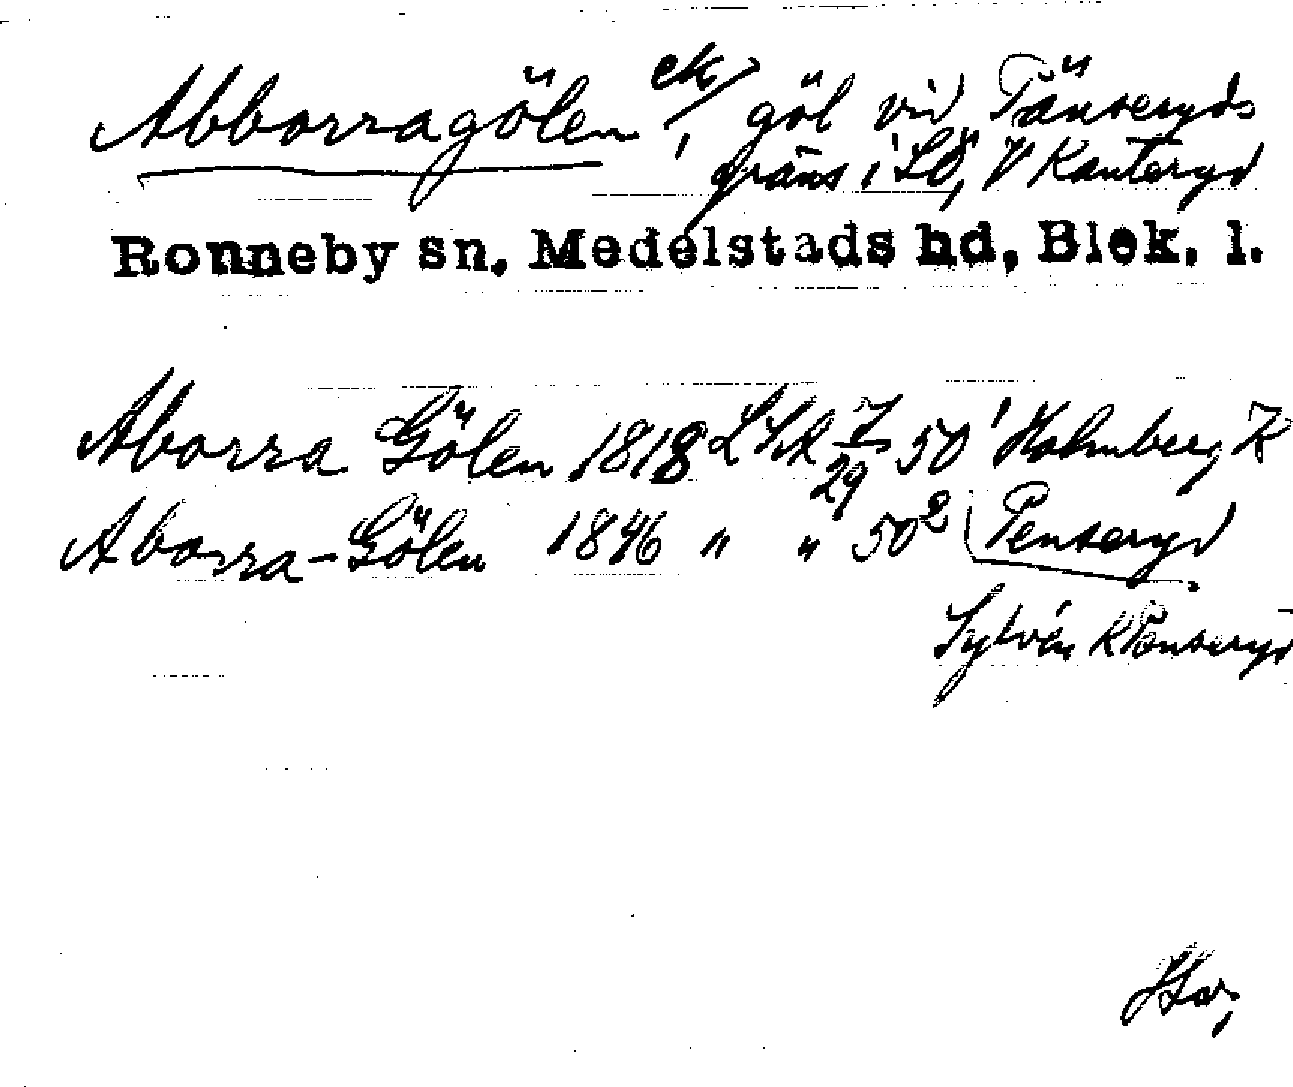 Abborragölen ek, göl vid Tänseryds
gräns i SÖ, V Kanteryd
Ronneby sn, Medelstads hd, Blek. l.
Aborra Gölen 1818 LSA 7/29 50¹ Holmberg K
Aborra-Gölen 1846 " " 50² Penseryd
Sylvén K Penseryd